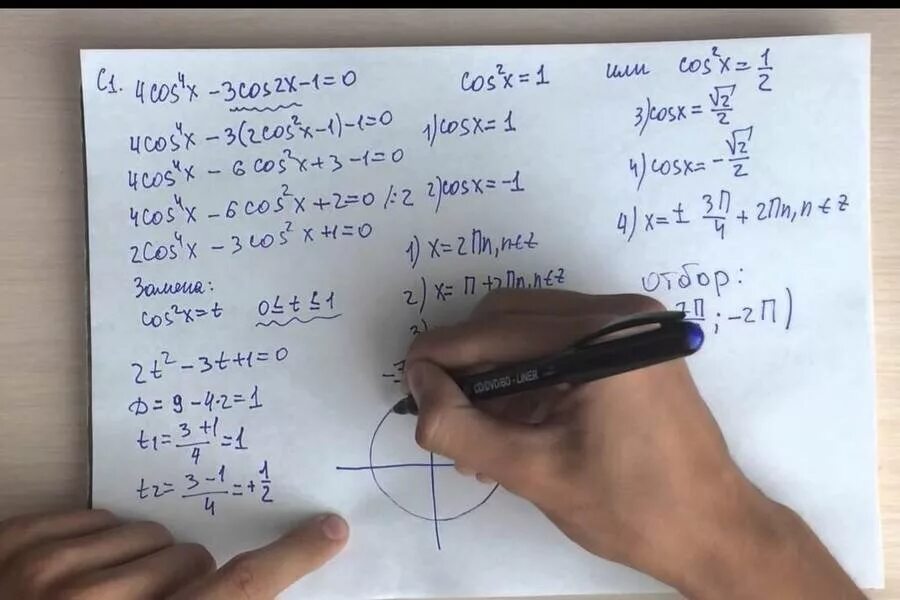 С1. 4cos⁴x - 3cos2x - 1 = 0
4cos⁴x - 3(2cos²x - 1) - 1 = 0
4cos⁴x - 6cos²x + 3 - 1 = 0
4cos⁴x - 6cos²x + 2 = 0 /:2
2cos⁴x - 3cos²x + 1 = 0
Замена:
cos²x = t 0 ≤ t ≤ 1
2t² - 3t + 1 = 0
D = 9 - 4·2 = 1
t1 = (3+1)/4 = 1
t2 = (3-1)/4 = +1/2
cos²x = 1 или cos²x = 1/2
1) cosx = 1
2) cosx = -1
1) x = 2Пn, n∈z
2) x = П + 2Пn, n∈z
3)
3) cosx = √2/2
4) cosx = -√2/2
4) x = ± 3П/4 + 2Пn, n∈z
Отбор:
; -2П)
CD/DVD/BD - LINER